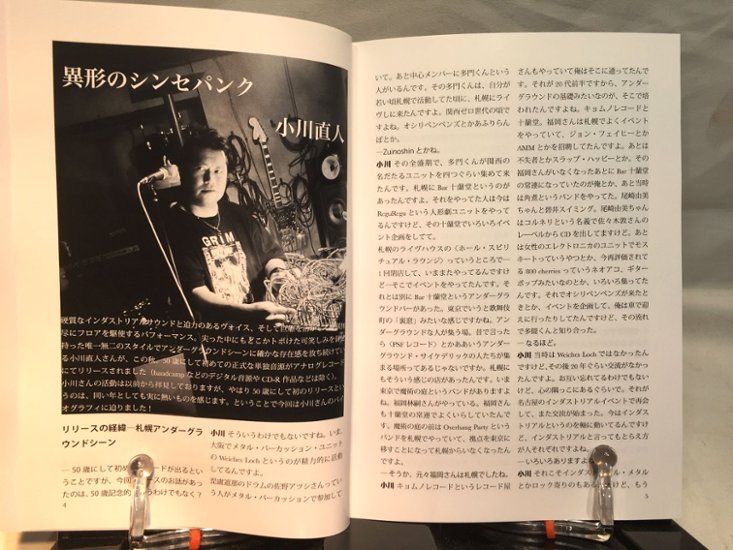 異形のシンセパンク
小川直人
GRIM
硬質なインダストリアルサウンドと迫力のあるヴォイス、そして
尽にフロアを駆使するパフォーマンス。
る小川直人さんが、この秋、50歳にして初めての正式な単独音源がアナログレコード
にてリリースされました（bandcampなどのデジタル音源や CD-R 作品などは除く）。
小川さんの活動は以前から拝見しておりますが、やはり50歳にして初のリリースとい
うのは、同い年としても実に熱いものを感じます。ということで今回は小川さんのバイ
オグラフィに迫りました！
リリースの経緯―札幌アンダーグラ
ウンドシーン
― 50歳にして初め
ということですが、今回
たのは、50歳記念的
4
小川 そういうわけでもないですね。いま、
大阪でメタル・パーカッション・ユニット
の Weiches Loch というのが精力的に活動
してるんですよ。
涅槃道那のドラムの佐野アツシさんってい
う人がメタル・パーカッションで参加して
いて。あと中心メンバーに多門くんという
人がいるんです。その多門くんは、自分が
若い頃札幌で活動してた頃に、札幌にライ
ヴしに来たんですよ。関西ゼロ世代の頃で
すよね。オシリペンペンズとかあふりらん
ぽとか。
―Zuinoshin とかね。
小川 その全盛期で、多門くんが関西の
名だたるユニットを四つぐらい集めて来
たんです。札幌に Bar 十蘭堂というのが
あったんですよ。それをやってた人は今は
ReguReguという人形劇ユニットをやって
るんですけど、その十蘭堂でいろいろイベ
ント企画をしてて。
札幌のライヴハウスの〈ホール・スピリ
チュアル・ラウンジ〉っていうところで―
1回閉店して、いままたやってるんですけ
ど―そこでイベントをやってたんです。そ
れとは別に Bar 十蘭堂というアンダーグラ
ウンドバーがあった。東京でいうと歌舞伎
町の「裏窓」みたいな感じですかね。アン
ダーグラウンドな人が集う場。昔で言った
ら〈PSFレコード〉とかああいうアンダー
グラウンド・サイケデリックの人たちが集
まる場所ってあるじゃないですか。札幌に
もそういう感じの店があったんです。いま
東京で魔術の庭というバンドがありますよ
ね。福岡林嗣さんがやっている。福岡さん
も十蘭堂の常連でよくいらしていたんで
す。魔術の庭の前は Overhang Party という
バンドを札幌でやっていて、拠点を東京に
移すことになって札幌からいなくなったん
ですよ。
―そうか、元々福岡さんは札幌でしたね。
小川 キョムノレコードというレコード屋
さんもやっていて俺はそこに通ってたんで
す。それが20代前半ですから、アンダー
グラウンドの基礎みたいなのが、そこで培
われたんですよね。キョムノレコードと
十蘭堂。福岡さんは札幌でよくイベント
をやっていて、ジョン・フェイヒーとか
AMMとかを招聘してたんですよ。あとは
不失者とかスラップ・ハッピーとか。その
福岡さんがいなくなったあとに Bar 十蘭堂
の常連になっていたのが俺とか。あと当時
は角煮というバンドをやってた。尾崎由美
ちゃんと酋井スイミング。尾崎由美ちゃん
はコルネリという名義で佐々木敦さんの
レーベルから CDを出してますけど。あと
は女性のエレクトロニカのユニットでモス
キートっていうやつとか、今再評価されて
る 800 cherries っていうネオアコ、ギター
ポップみたいなのとか、いろいろ集ってた
んです。それでオシリペンペンズが来たと
きとか、イベントを企画して、俺は車で迎
えに行ったりしてたんですけど、その流れ
で多聞くんと知り合った。
―なるほど。
小川 当時は Weiches Loch ではなかったん
ですけど、その後20年ぐらい交流がなかっ
たんですよ。お互い忘れてるわけでもない
けど、心の隅っこにあるぐらいで。それが
名古屋のインダストリアルイベントで再会
して、また交流が始まった。今はインダス
トリアルというのを軸に動いてるんですけ
ど、インダストリアルと言ってもとらえ方
が人それぞれですよね。
―いろいろあります
小川 それこそインダスト
とかロック寄りのもあるん
5